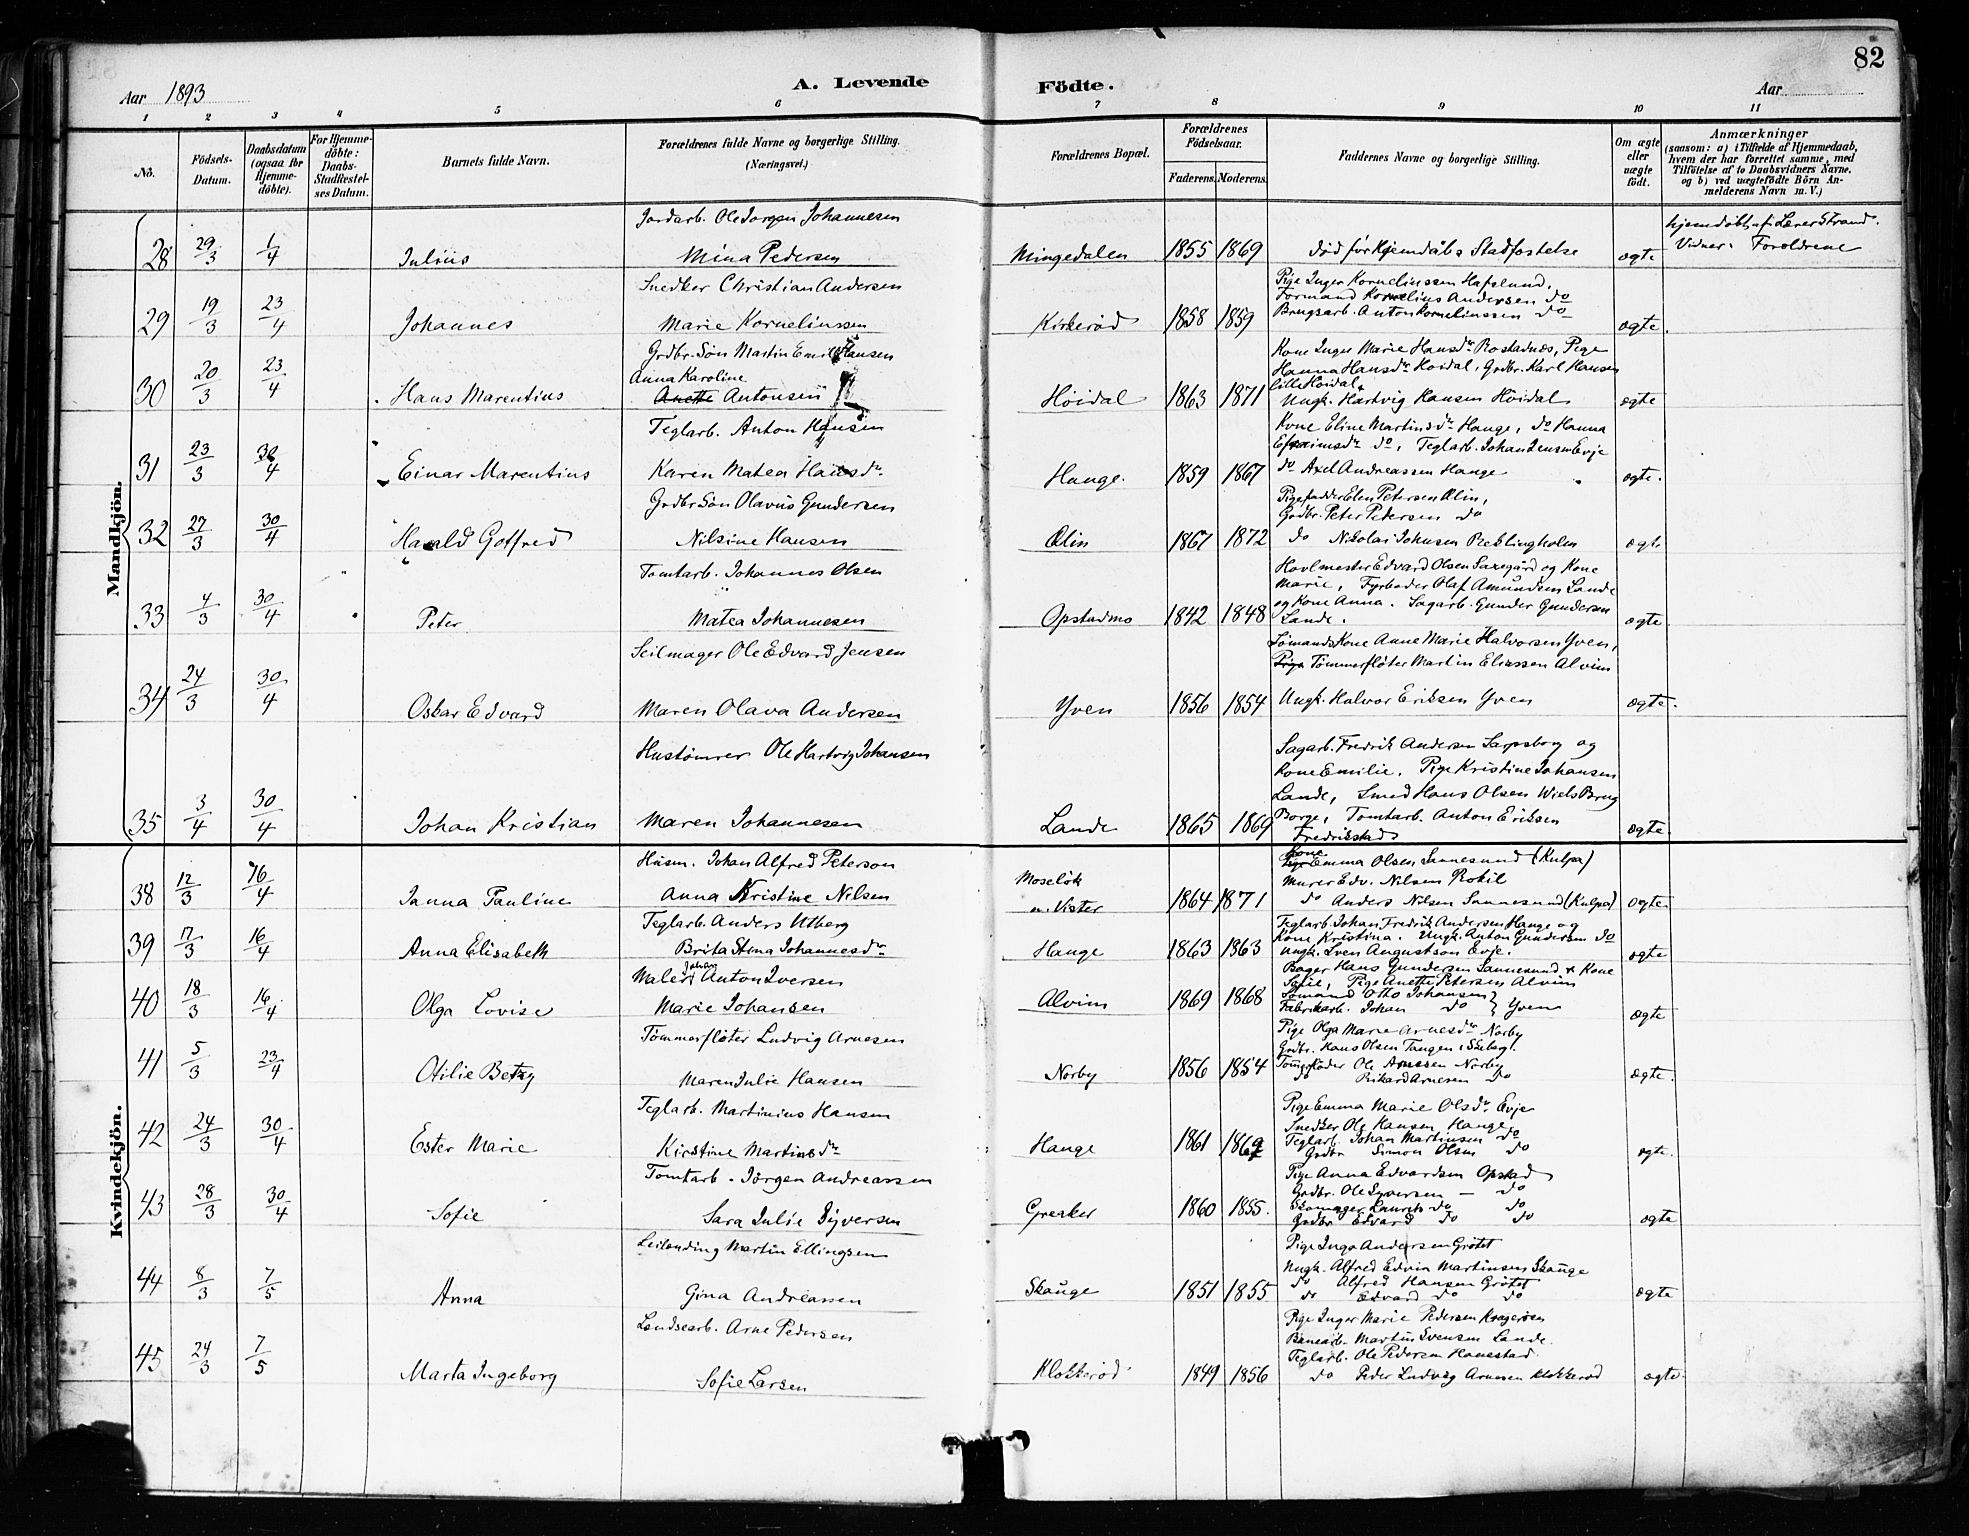 82
Aar 1893
A. Levende
Födte.
Aar
1 2 3 4 5 6 7 8 9 10 11
No.
Födsels-Datum.
Daabsdatum (ogsaa for Hjemme-döbte).
For Hjemme-döbte: Daabs-Stadfæstel-ses Datum.
Barnets fulde Navn.
Forældrenes fulde Navne og borgerlige Stilling. (Næringsvei.)
Forældrenes Bopæl.
Forældrenes Födselsaar.
Faderens. Moderens.
Faddernes Navne og borgerlige Stilling.
Om ægte eller uægte födt.
Anmærkninger
(saasom: a) i Tilfælde af Hjemmedaab, hvem der har forrettet samme, med Tilföielse af to Daabsvidners Navne, og b) ved uægtefödte Börn Anmelderens Navn m. V.)
Mandkjön.
Jordarb. Ole Jørgen Johannesen
hjemdøbt af Lærer Strand.
28 29/3 1/4 Julius Mina Pedersen Mingedalen 1855 1869 død før hjemdåbs Stadfæstelse ægte Vidner: Forældrene
Snedker Christian Andersen
Pige Inger Korneliussen Hafslund,
Formand Kornelius Andersen do
29 19/3 23/4 Johannes Marie Korneliussen Kirkerød 1858 1859 Brugsarb. Anton Korneliussen do ægte.
Grdbr. Søn Martin Emil Hansen
Kone Inger Marie Hansdr Rostadnes, Pige
Anna Karoline
Hanna Hansdr Høidal, Grdbr. Karl Hansen
lille Høidal,
30 20/3 23/4 Hans Marentius Anette Antonsen Høidal 1863 1871 Ungk. Hartvig Hansen Høidal ægte
Teglarb. Anton Hansen
Kone Eline Martinsdr Hauge, do Hanna
Efraimsdr do, Teglarb. Johan Jensen Evje
31 23/3 30/4 Einar Marentius Karen Matea Hansdr. Hauge. 1859 1867 do Axel Andreassen Hauge ægte.
Grdbr Søn Olavus Gundersen
Pigefadder Elen Petersen Ølin,
Grdbr. Peter Pedersen do
32 27/3 30/4 Harald Gotfred Nilsine Hansen Ølin 1867 1872 do Nikolai Johnsen Rektingholm ægte
Tomtarb. Johannes Olsen
Hovlmester Edvard Olsen Saxegård og Kone
Marie, Fyrbøder Olaf Amundsen Lande
og Kone Anna. Sagarb. Gunder Gundersen
33 4/3 30/4 Peter Matea Johannesen Opstadmo 1842 1848 Lande. ægte
Seilmager Ole Edvard Jensen
Sømands Kone Anne Marie Halvorsen Yven,
Pige Tømmerfløter Martin Eliassen Alvim
34 24/3 30/4 Oskar Edvard Maren Olava Andersen Yven 1856 1854 Ungk. Halvor Eriksen Yven ægte.
Hustømrer Ole Hartvig Johansen
Sagarb. Fredrik Andersen Sarpsborg og
Kone Emilie. Pige Kristine Johansen
Lande, Smed Hans Olsen Wiels Brug
35 3/4 30/4 Johan Kristian Maren Johannesen Lande 1865 1869 Borge, Tomtarb. Anton Eriksen ægte.
Fredrikstad
Kvindekjön.
Husm. Johan Alfred Peterson
Kone
Pige Emma Olsen Sannesund (Kulpa)
Moseløk
Murer Edv. Nilsen Rokil
38 12/3 16/4 Janna Pauline Anna Kristine Nilsen u. Vister 1864 1871 do Anders Nilsen Sannesund (Kulpa) ægte.
Teglarb. Anders Utberg
Teglarb. Johan Fredrik Andersen Hauge og
Kone Kristina. Ungk. Anton Gundersen do
39 17/3 16/4 Anna Elisabeth Brita Stina Johannesdr Hauge 1863 1863 Ungk. Sven Augustson Evje. ægte
Johan
Maler Anton Iversen
Bager Hans Gundersen Sannesund & Kone
Sofie, Pige Anette Petersen Alvim
Sømand Otto Johansen
40 18/3 16/4 Olga Lovise Marie Johansen Alvim 1869 1868 Fabrikarb. Johan do } Yven ægte
Tømmerfløter Ludvig Arnesen
Pige Olga Marie Arnesdr Norby
Grdbr. Hans Olsen Tangen i Skeberg.
Tømerfløder Ole Arnesen Norby
41 5/3 23/4 Otilie Betzy Maren Julie Hansen Norby 1856 1854 do Rikard Arnesen do ægte.
Teglarb. Martinius Hansen
Pige Emma Marie Olsdr. Evje
Snedker Ole Hansen Hauge
Teglarb. Johan Martinsen do
42 24/3 30/4 Ester Marie Kirstine Martinsdr Hauge 1861 Grdbr Simon Olsen do ægte.
Tomtarb. Jørgen Andreassen
Pige Anna Edvardsen Opstad
Grdbr. Ole Syversen — do
Skomager Laurits do do
43 28/3 30/4 Sofie Sara Julie Syversen Greaker 1860 1855. Grdbr Edvard do do ægte
Leilending Martin Ellingsen
Pige Inga Andersen Grøtet
Ungk. Alfred Edvin Martinsen Skauge
do Alfred Hansen Grøtet
44 8/3 7/5 Anna Gina Andreassen Skauge 1851 1855 do Edvard do do ægte
Landsearb. Arne Pedersen
Pige Inger Marie Pedersen Kragerøen
Banearb. Martin Svensen Lande.
Teglarb. Ole Pedersen Hanestad
45 24/3 7/5 Marta Ingeborg Sofie Larsen Klokkerød 1849 1856 do Peder Ludvig Arnesen Klokkerød ægte.